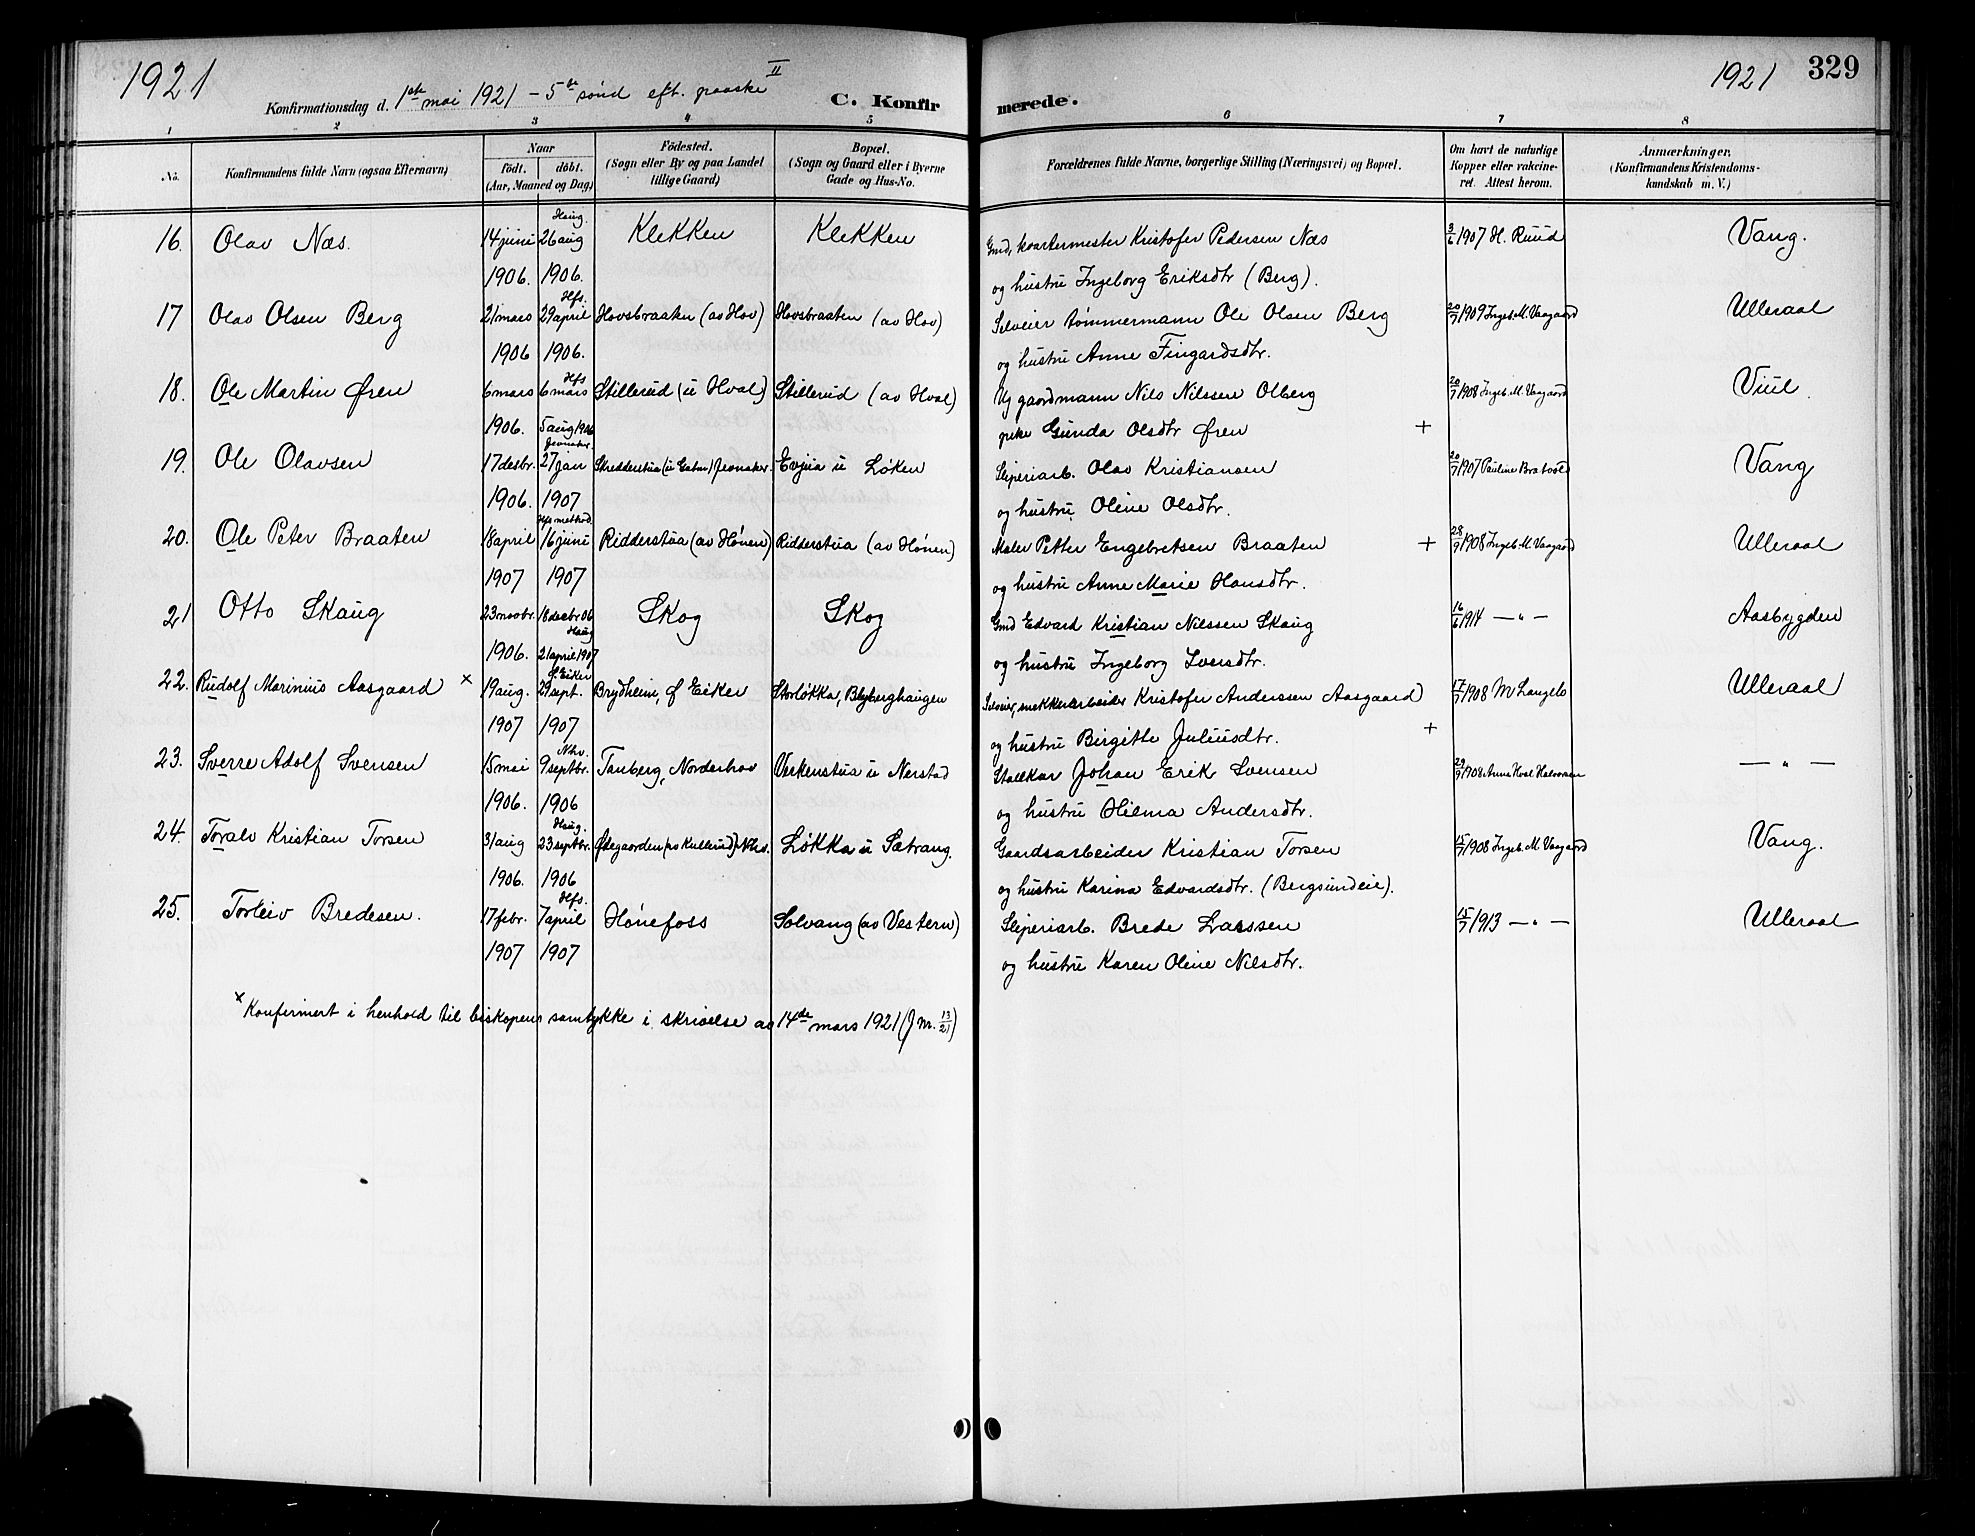 1921
Konfirmationsdag d. 1ste mai 1921 – 5te sönd eft. paaske II
C. Konfirmerede.
1921
329
1 2 3 4 5 6 7 8
No.
Konfirmandens fulde Navn (ogsaa Efternavn)
Naar födt. döbt. (Aar, Maaned og Dag)
Födested. (Sogn eller By og paa Landet tillige Gaard)
Bopæl. (Sogn og Gaard eller i Byerne Gade og Hus-No.
Forældrenes fulde Navne, borgerlige Stilling (Næringsvei) og Bopæl.
Om havt de naturlige Kopper eller vakcineret. Attest herom.
Anmærkninger, (Konfirmandens Kristendomskundskab m. V.)
Haug.
16. Olav Næs. 14 juni 26 aug Klekken Klekken Gmd, kvartermester Kristofer Pedersen Næs 3/6 1907 H. Ruud Vang.
1906. 1906. og hustru Ingeborg Eriksdtr (Berg).
Hfs.
17 Olav Olsen Berg 21 mars 29 april Hovsbraaten (av Hov) Hovsbraaten (av Hov) Selveier tømmermann Ole Olsen Berg 20/7 1909 Ingeb. M. Vaagaard Ulleraal
1906 1906. og hustru Anne Fingardsdtr.
Hfs
18. Ole Martin Øren 6 mars 6 mars Stillerud (u Hval) Stillerud (av Hval) Ug gaardmann Nils Nilssen Olberg 20/7 1908 Ingeb. M. Vaagaard Viul.
1906. 5 aug 1906 pike Gunda Olsdtr Øren +
Jevnaker.
19. Ole Olavsen 17 desbr. 27 jan Skredderstua (u Galm) Jevnaker. Evjua u Løken Sliperiarb. Olav Kristiansen 20/7 1907 Pauline Bratvold Vang
1906. 1907 og hustru Oline Olsdtr.
Hfs method.
20. Ole Peter Braaten 18 april 16 juni Ridderstua (av Hønen) Ridderstua (av Hønen) Maler Petter Engebretsen Braaten + 28/9 1908 Ingeb. M. Vaagaard Ulleraal
1907 1907 og hustru Anne Marie Hansdtr.
21 Otto Skaug 23 novbr. 18 desbr 06 Skog Skog Gmd Edvard Kristian Nilssen Skaug 16/6 1914 — " — Aasbygden
Haug
1906. 21 april 1907 og hustru Ingeborg Iversdtr.
22. Rudolf Marinius Aasgaard x 19 aug. 29 sept. Brydheim, Ø Eiker Storløkka, Blybergshaugen Selveier, snekkerarbeider Kristofer Anderssen Aasgaard 17/7 1908 M Langelo Ulleraal
1907 1907 og hustru Birgitte Juliusdtr. +
Nhv.
23. Sverre Adolf Svensen 15 mai 9 septbr. Tanberg, Norderhov Verkenstua u Nerstad Stallkar Johan Erik Svensen 29/9 1908 Anna Hval Halvorsen — " —
1906. 1906 og hustru Hilma Andersdtr.
Haug.
24. Toralv Kristian Torsen 31 aug 23 septbr. Øiegaarden (av Kullerud) Nhv. Løkka u Sætrang. Gaardsarbeider Kristian Torsen 15/7 1908 Ingeb. M. Vaagaard Vang.
1906. 1906 og hustru Karina Edvardsdtr. (Bergsundeie).
Hfs.
25. Torleiv Bredesen. 17 febr. 7 april Hønefoss Solvang (av Vestern) Sliperiarb. Brede Larssen 15/7 1913 — " — Ulleraal
1907 1907 og hustru Karen Oline Nilsdtr.
x Konfirmert i henhold til biskopens samtykke i skrivelse av 14de mars 1921 (J M. 13/21)